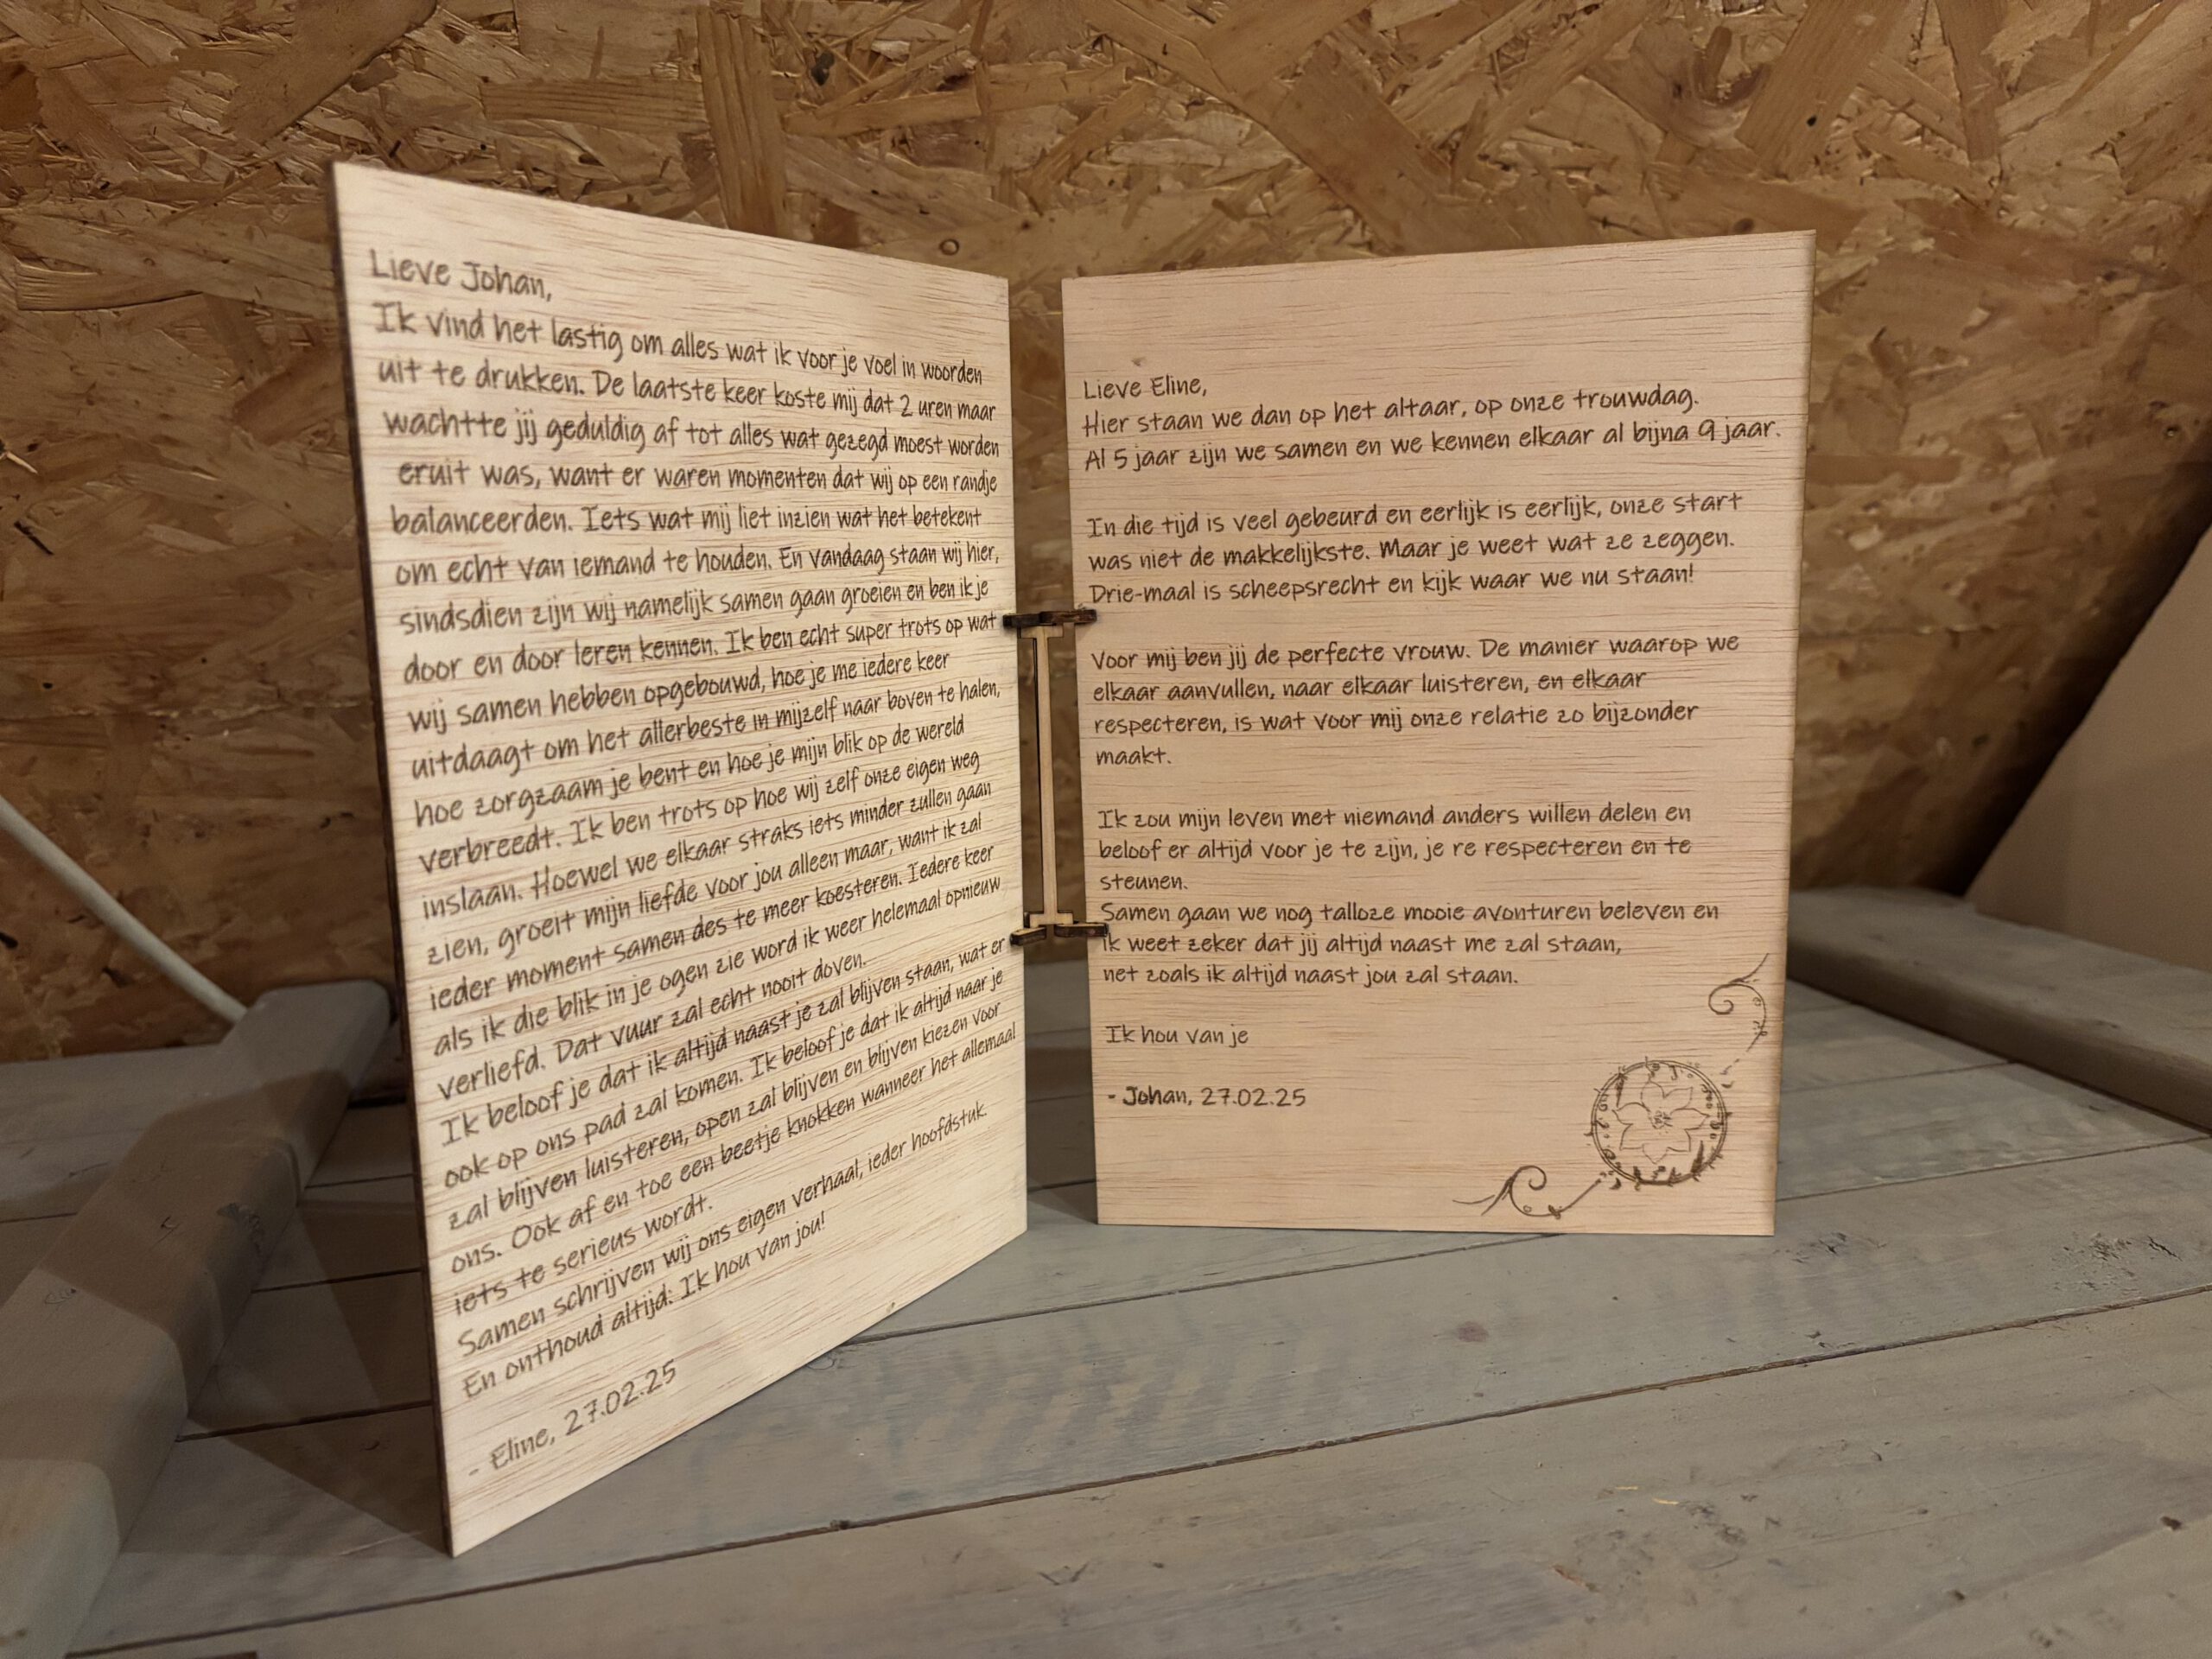 Lieve Johan,
Ik vind het lastig om alles wat ik voor je voel in woorden
uit te drukken. De laatste keer koste mij dat 2 uren maar
wachtte jij geduldig af tot alles wat gezegd moest worden
eruit was, want er waren momenten dat wij op een randje
balanceerden. Iets wat mij liet inzien wat het betekent
om echt van iemand te houden. En vandaag staan wij hier,
sindsdien zijn wij namelijk samen gaan groeien en ben ik je
door en door leren kennen. Ik ben echt super trots op wat
wij samen hebben opgebouwd, hoe je me iedere keer
uitdaagt om het allerbeste in mijzelf naar boven te halen,
hoe zorgzaam je bent en hoe je mijn blik op de wereld
verbreedt. Ik ben trots op hoe wij zelf onze eigen weg
inslaan. Hoewel we elkaar straks iets minder zullen gaan
zien, groeit mijn liefde voor jou alleen maar, want ik zal
ieder moment samen des te meer koesteren. Iedere keer
als ik die blik in je ogen zie word ik weer helemaal opnieuw
verliefd. Dat vuur zal echt nooit doven.
Ik beloof je dat ik altijd naast je zal blijven staan, wat er
ook op ons pad zal komen. Ik beloof je dat ik altijd naar je
zal blijven luisteren, open zal blijven en blijven kiezen voor
ons. Ook af en toe een beetje knokken wanneer het allemaal
iets te serieus wordt.
Samen schrijven wij ons eigen verhaal, ieder hoofdstuk.
En onthoud altijd: Ik hou van jou!
- Eline, 27.02.25
Lieve Eline,
Hier staan we dan op het altaar, op onze trouwdag.
Al 5 jaar zijn we samen en we kennen elkaar al bijna 9 jaar.
In die tijd is veel gebeurd en eerlijk is eerlijk, onze start
was niet de makkelijkste. Maar je weet wat ze zeggen.
Drie-maal is scheepsrecht en kijk waar we nu staan!
Voor mij ben jij de perfecte vrouw. De manier waarop we
elkaar aanvullen, naar elkaar luisteren, en elkaar
respecteren, is wat voor mij onze relatie zo bijzonder
maakt.
Ik zou mijn leven met niemand anders willen delen en
beloof er altijd voor je te zijn, je re respecteren en te
steunen.
Samen gaan we nog talloze mooie avonturen beleven en
ik weet zeker dat jij altijd naast me zal staan,
net zoals ik altijd naast jou zal staan.
Ik hou van je
- Johan, 27.02.25